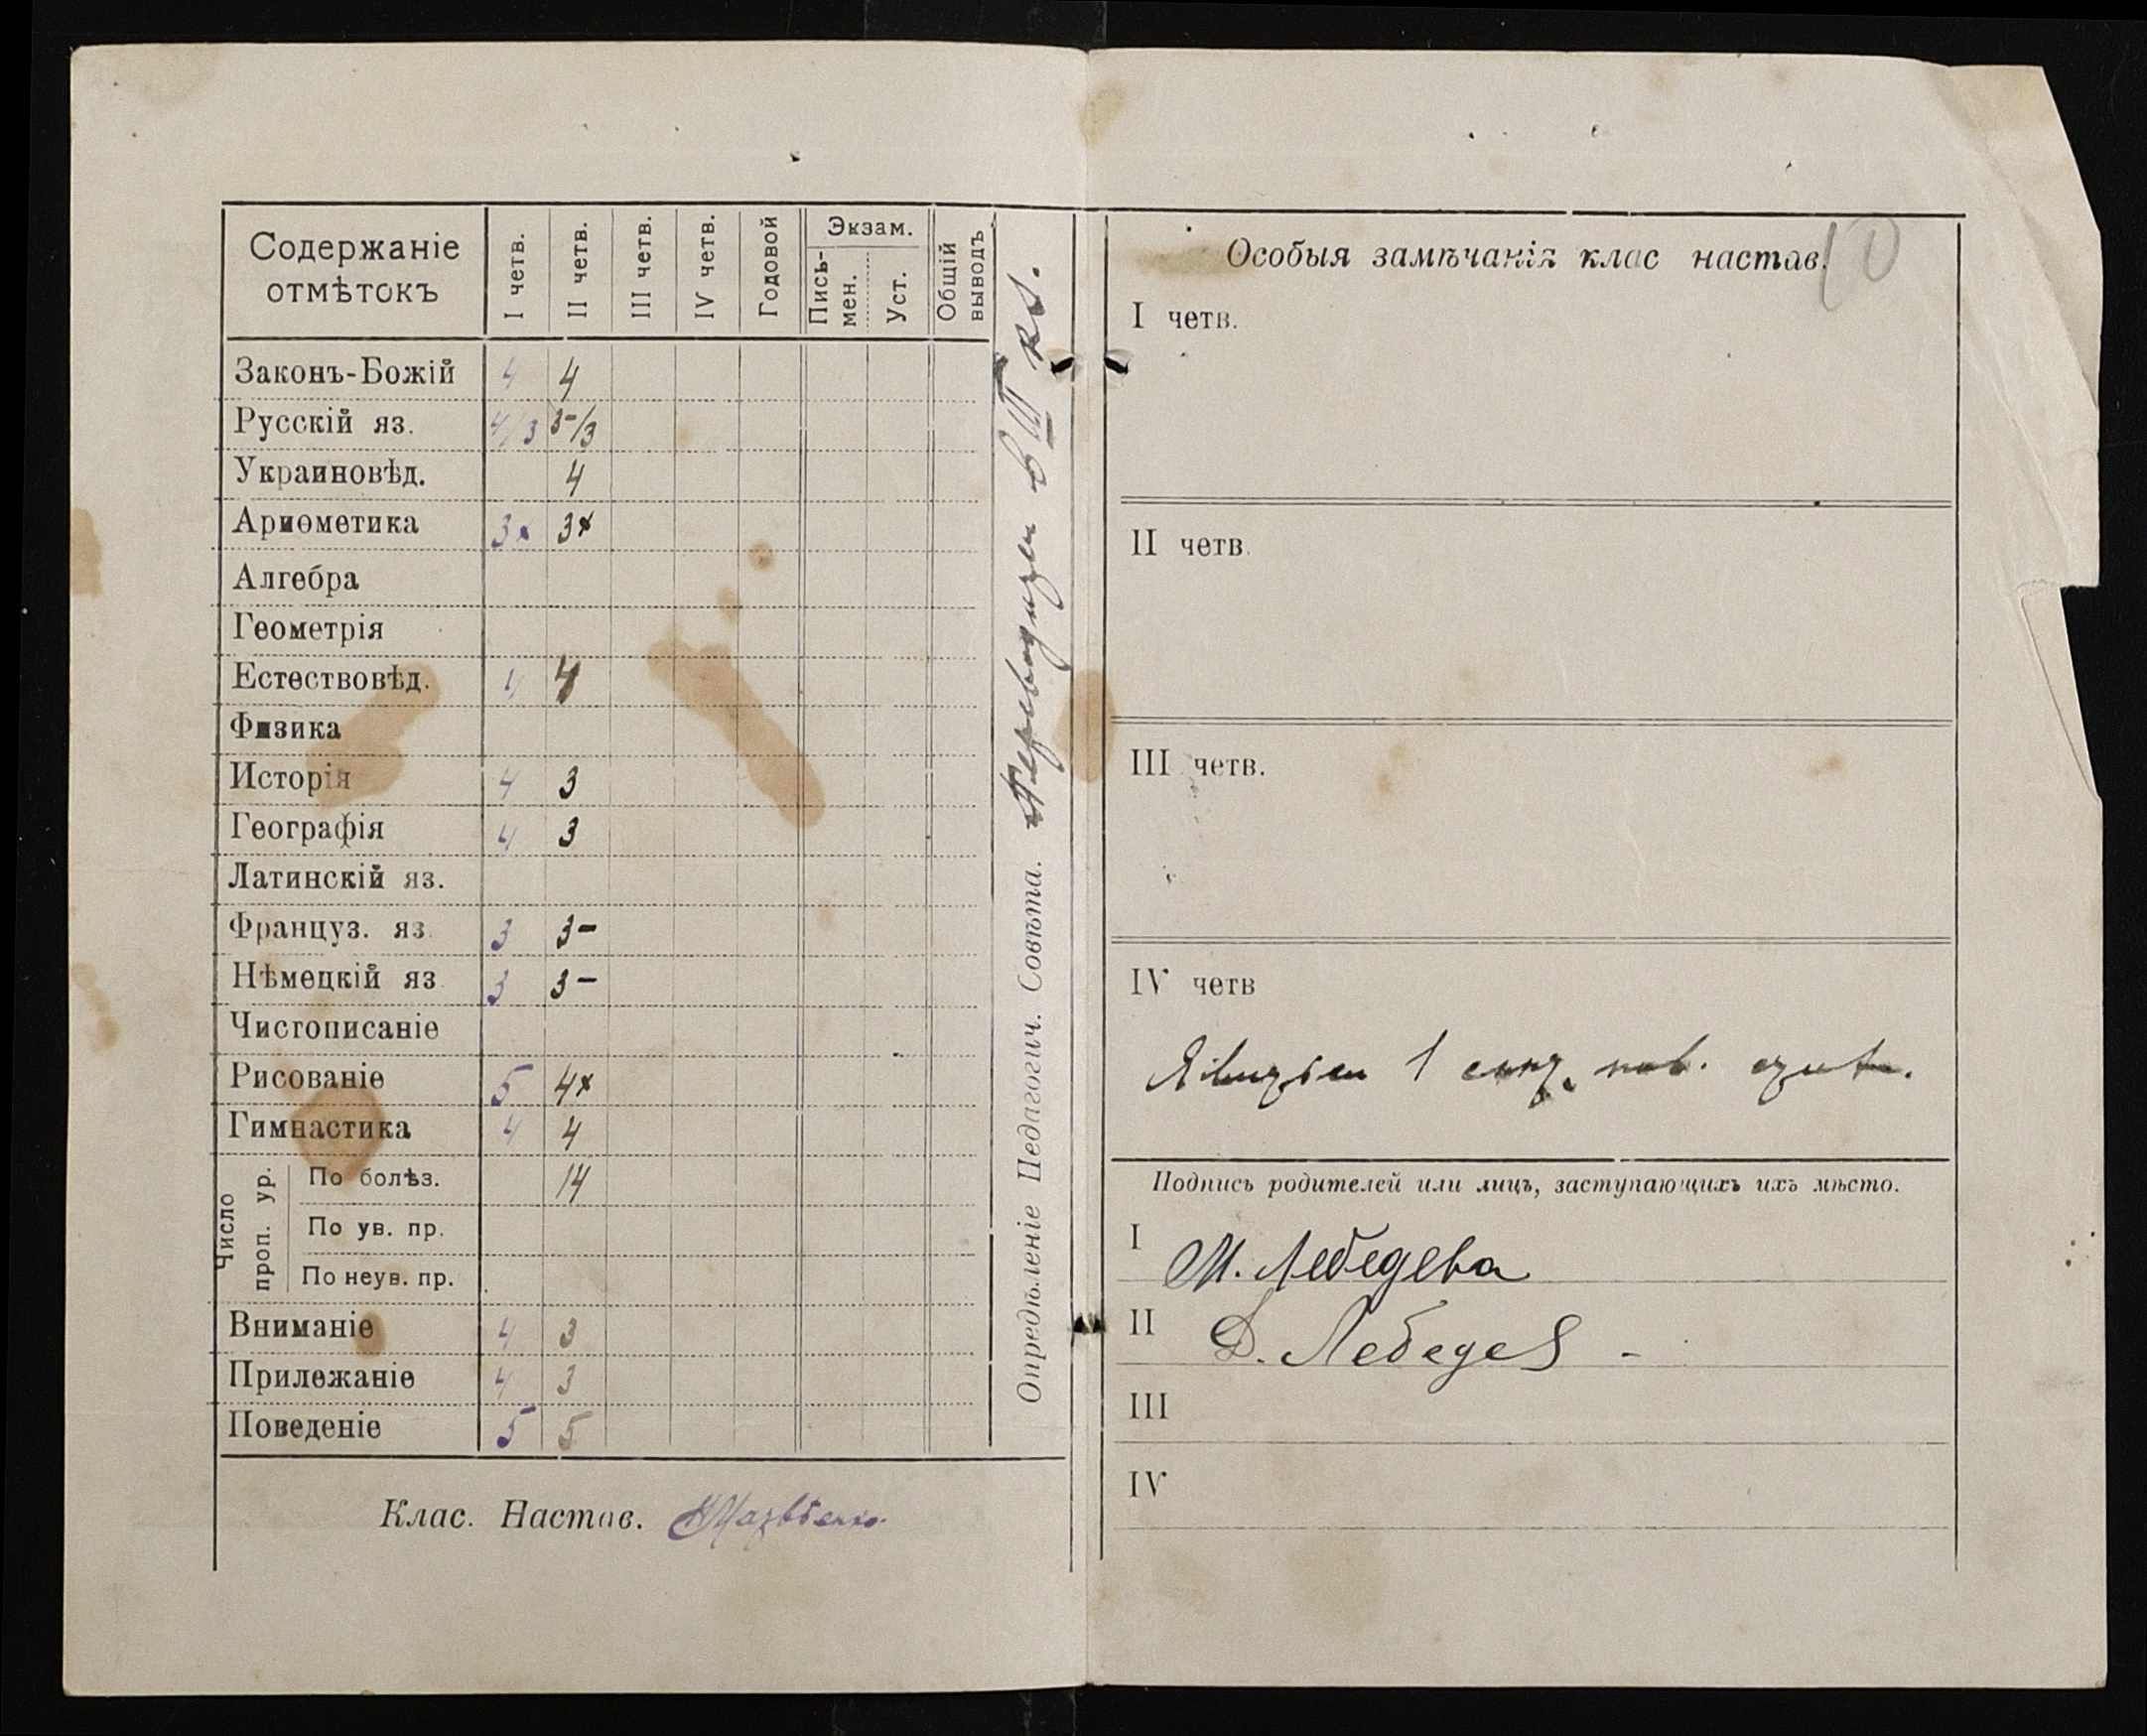 Содержаніе отмѣтокъ I четв. II четв. III четв. IV четв. Годовой Экзам. Пись-мен. Уст. Общій выводъ
Законъ-Божій 4 4
Русскій яз. 4/3 3-/3
Украиновѣд. 4
Ариѳметика 3× 3×
Алгебра
Геометрія
Естествовѣд. 4 4
Физика
Исторія 4 3
Географія 4 3
Латинскій яз.
Француз. яз. 3 3-
Нѣмецкій яз 3 3-
Чистописаніе
Рисованіе 5 4×
Гимнастика 4 4
Число проп. ур.
По болѣз. 14
По ув. пр.
По неув. пр.
Вниманіе 4 3
Прилежаніе 4 3
Поведеніе 5 5
Клас. Настав.
Опредѣленіе Педагогич. Совѣта. Переводится в III кл.
Особыя замѣчанія клас настав.
I четв.
II четв.
III четв.
IV четв
1
Подпись родителей или лицъ, заступающихъ ихъ мѣсто.
I М. Лебедева
II Д. Лебедев
III
IV